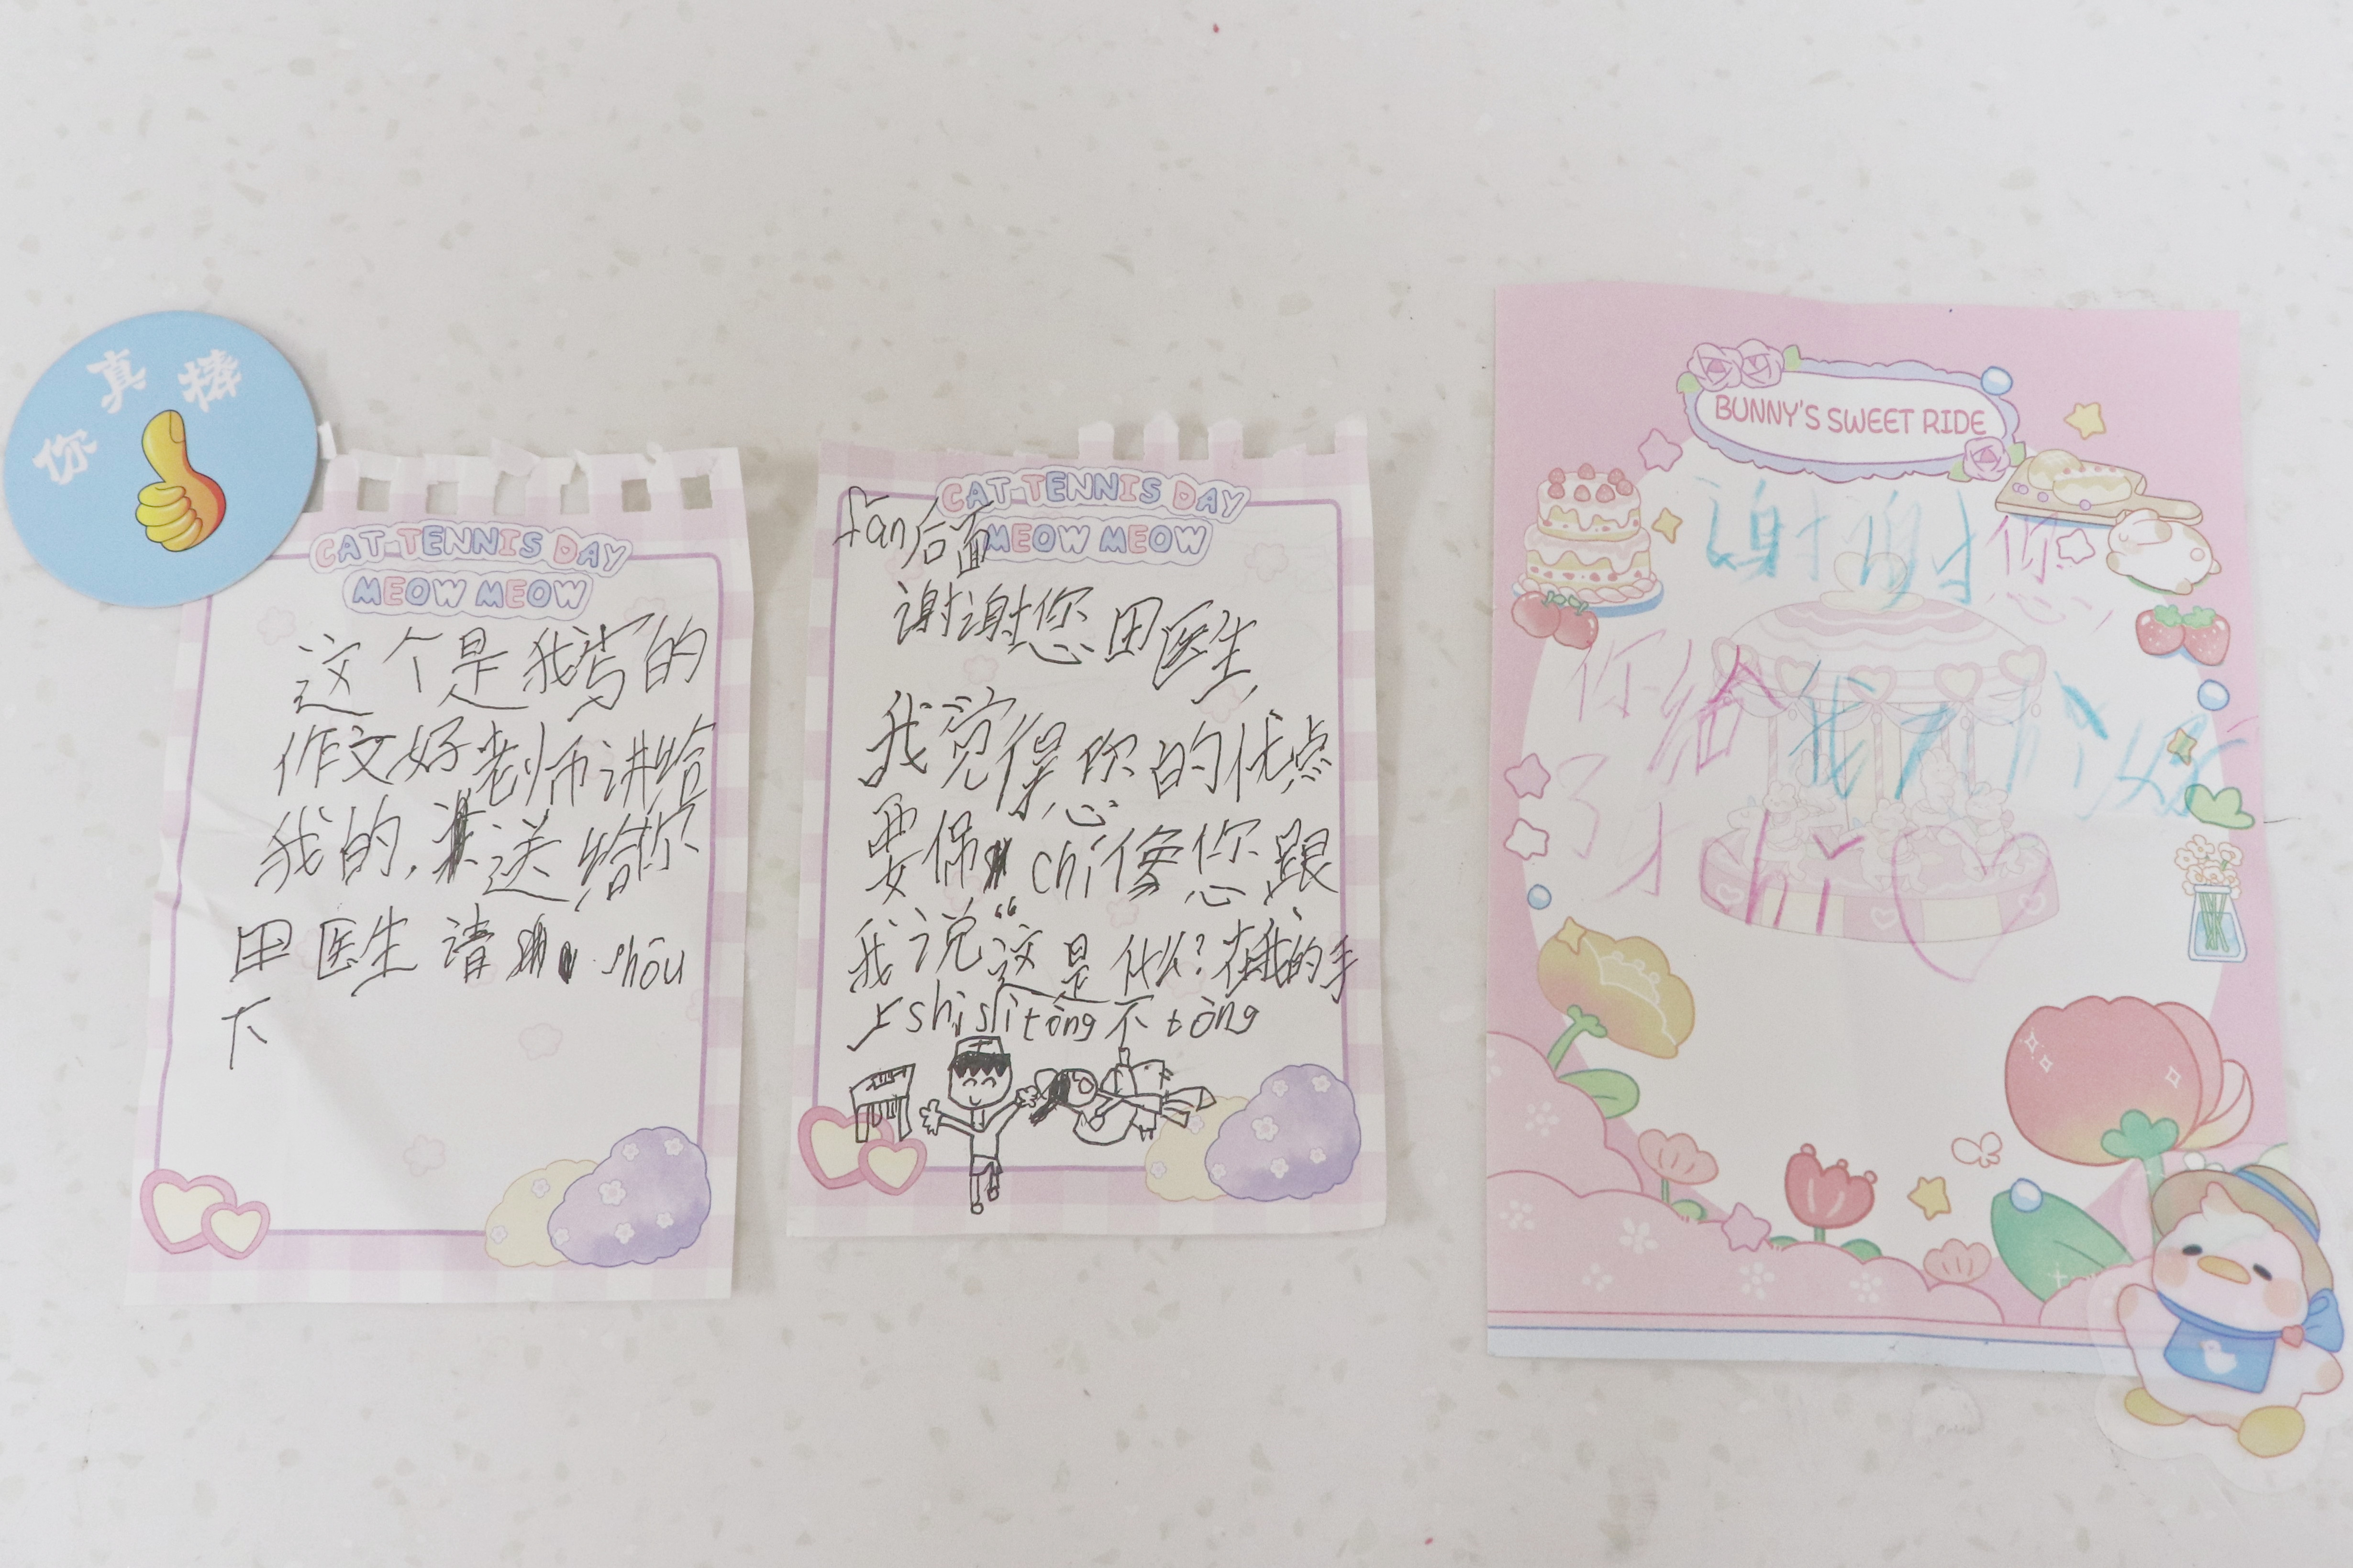 你真棒
CAT-TENNIS DAY
MEOW MEOW
这个是我写的
作文好老师讲给
我的,送给你
田医生请shōu
下
CAT-TENNIS DAY
MEOW MEOW
fān后面
谢谢您田医生
我觉得您的优点
要保chí像您跟
我说“这是什么?在我的手
上shì shì tòng不tòng
BUNNY'S SWEET RIDE
谢谢您
你给我
了
chī